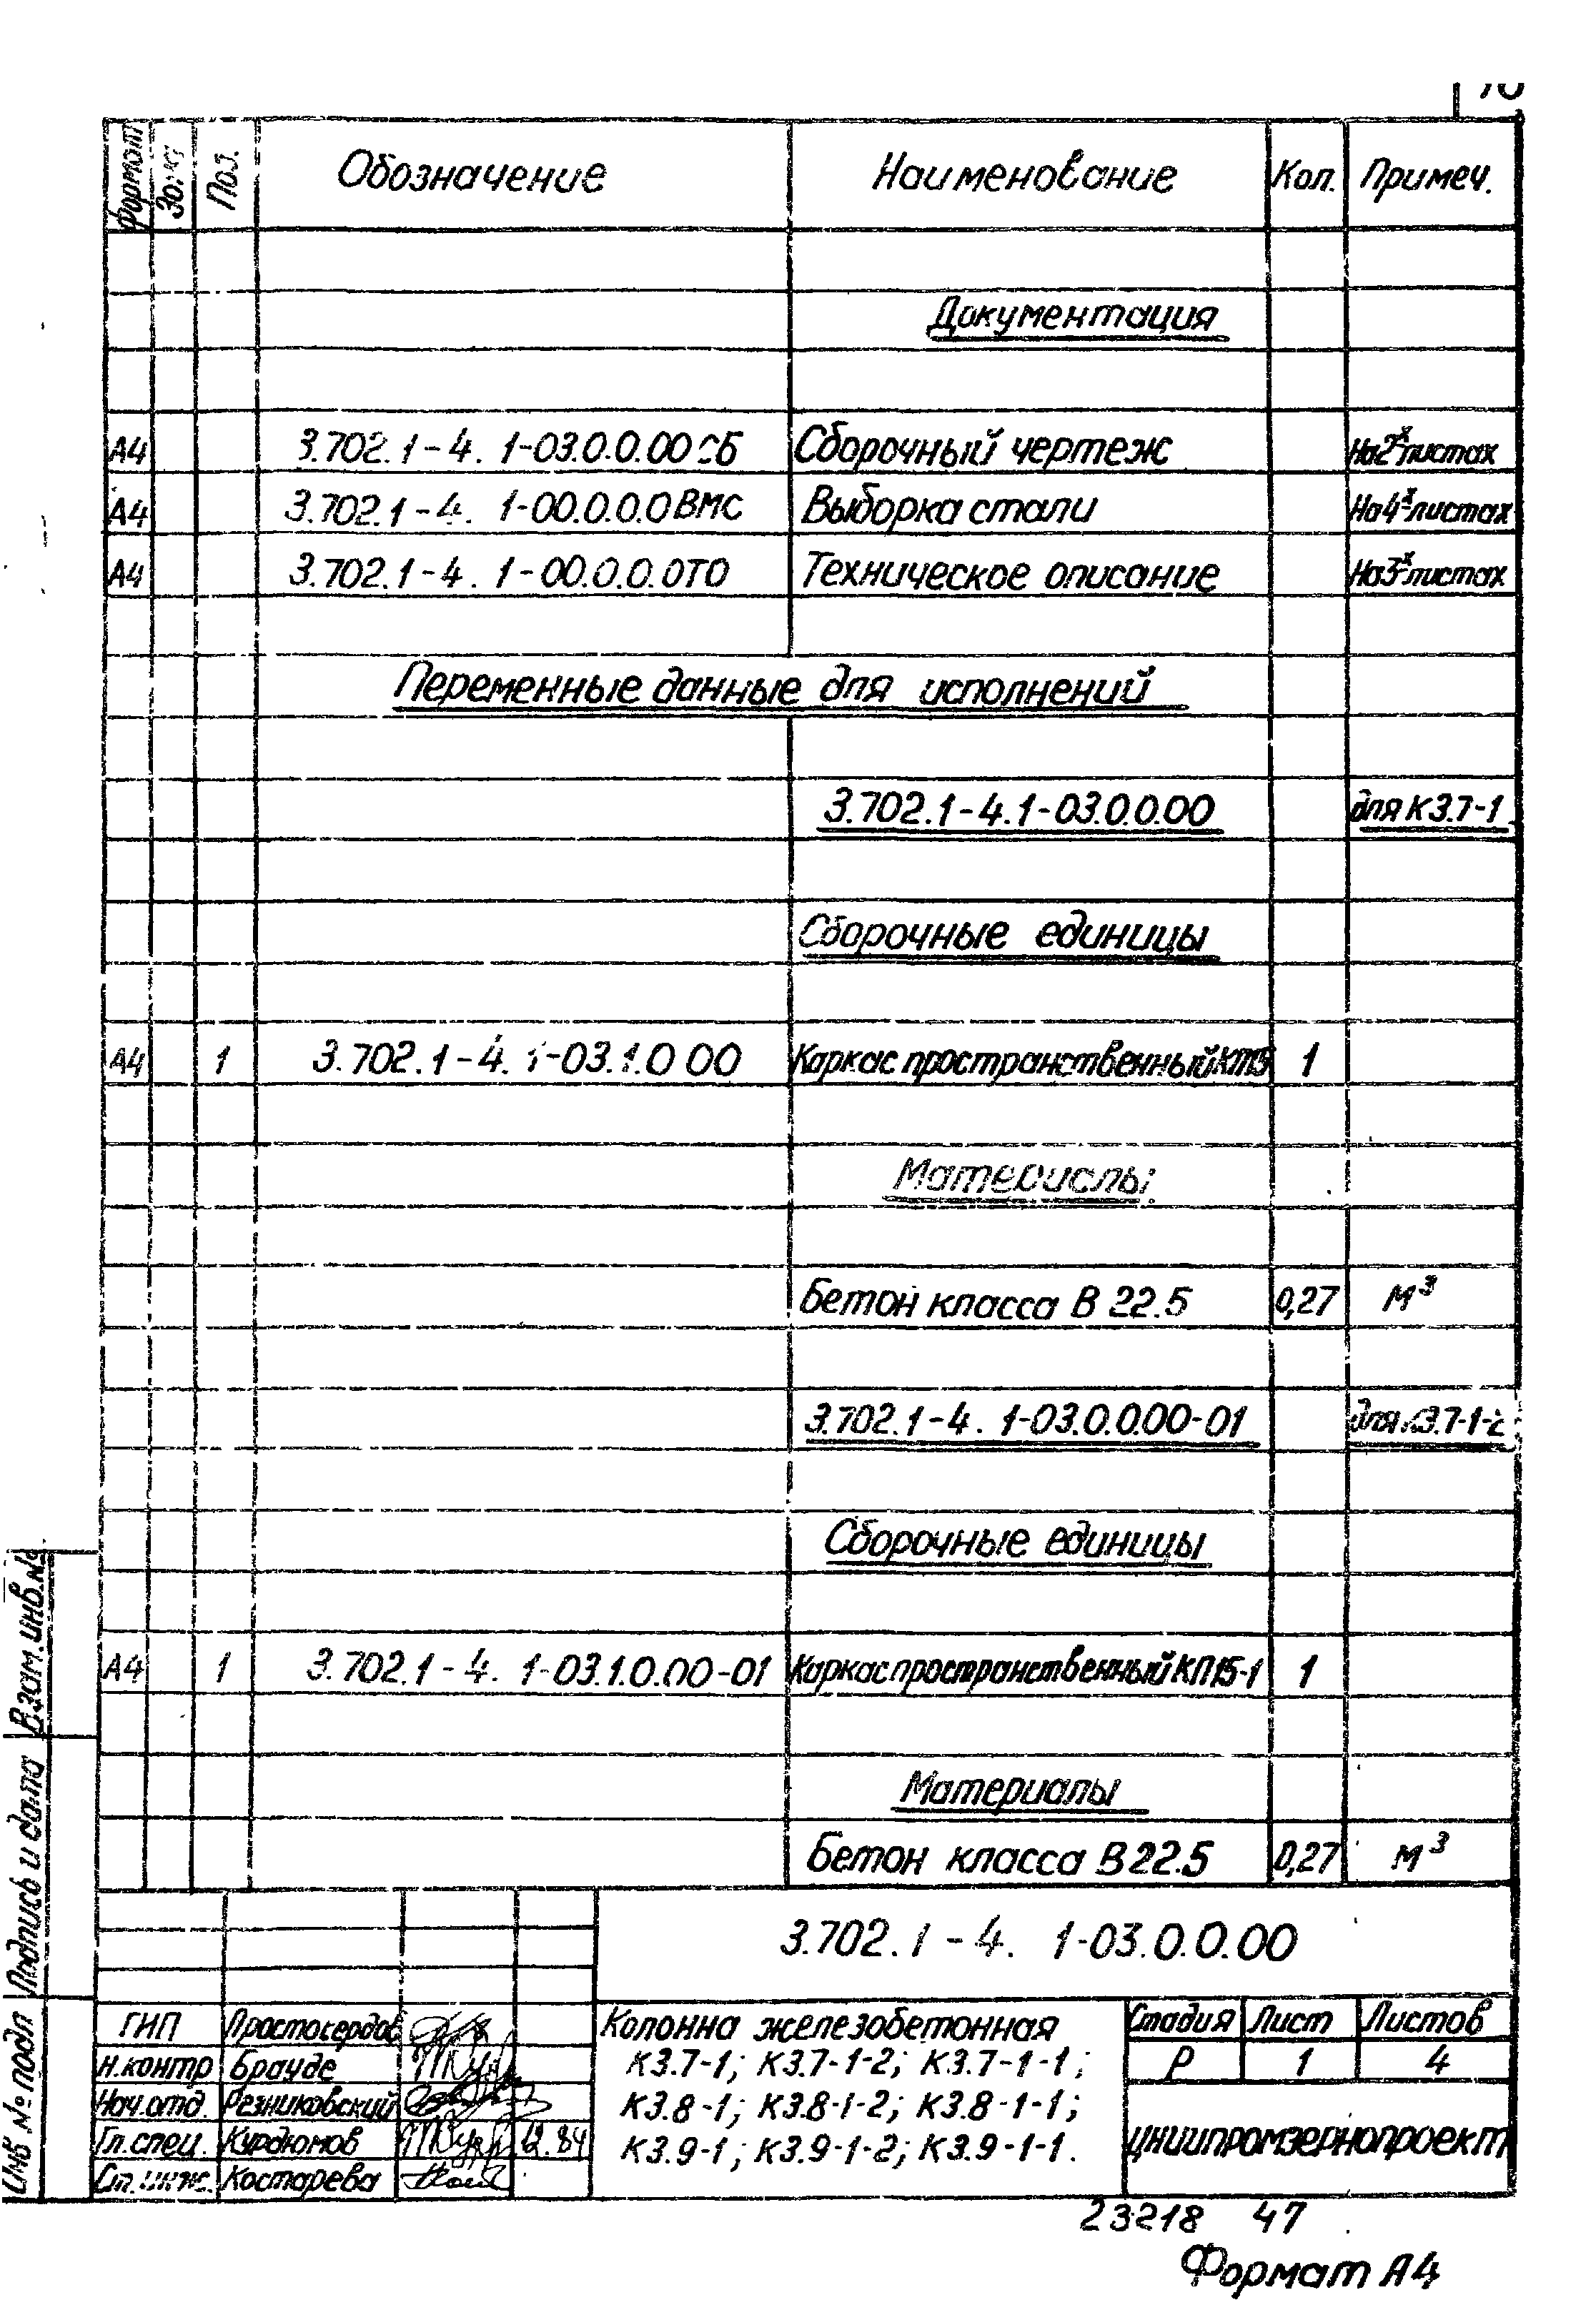 Формат Зона Поз. Обозначение Наименование Кол. Примеч.
Документация
А4 3.702.1-4. 1-03.0.0.00СБ Сборочный чертеж На 2х листах
А4 3.702.1-4. 1-00.0.0.0ВМС Выборка стали На 4х листах
А4 3.702.1-4. 1-00.0.0.0ТО Техническое описание На 3х листах
Переменные данные для исполнений
3.702.1-4.1-03.0.0.00 для К3.7-1
Сборочные единицы
А4 1 3.702.1-4. 1-03.1.0 00 Каркас пространственный 1
Материалы
Бетон класса В 22.5 0,27 м³
3.702.1-4. 1-03.0.0.00-01 для К3.7-1-2
Сборочные единицы
А4 1 3.702.1-4. 1-03.1.0.00-01 Каркас пространственный КП15-1 1
Материалы
Бетон класса В 22.5 0,27 м³
Взам. инв. №
Подпись и дата
Инв № подл
3.702.1-4. 1-03.0.0.00
ГИП Простосердов
Н.контр Брауде
Нач.отд. Резниковский
Гл.спец. Курдюмов 12.84
Ст. инж. Костарева
Колонна железобетонная
К3.7-1; К3.7-1-2; К3.7-1-1;
К3.8-1; К3.8-1-2; К3.8-1-1;
К3.9-1; К3.9-1-2; К3.9-1-1.
Стадия Лист Листов
Р 1 4
ЦНИИпромзернопроект
23218 47
Формат А4